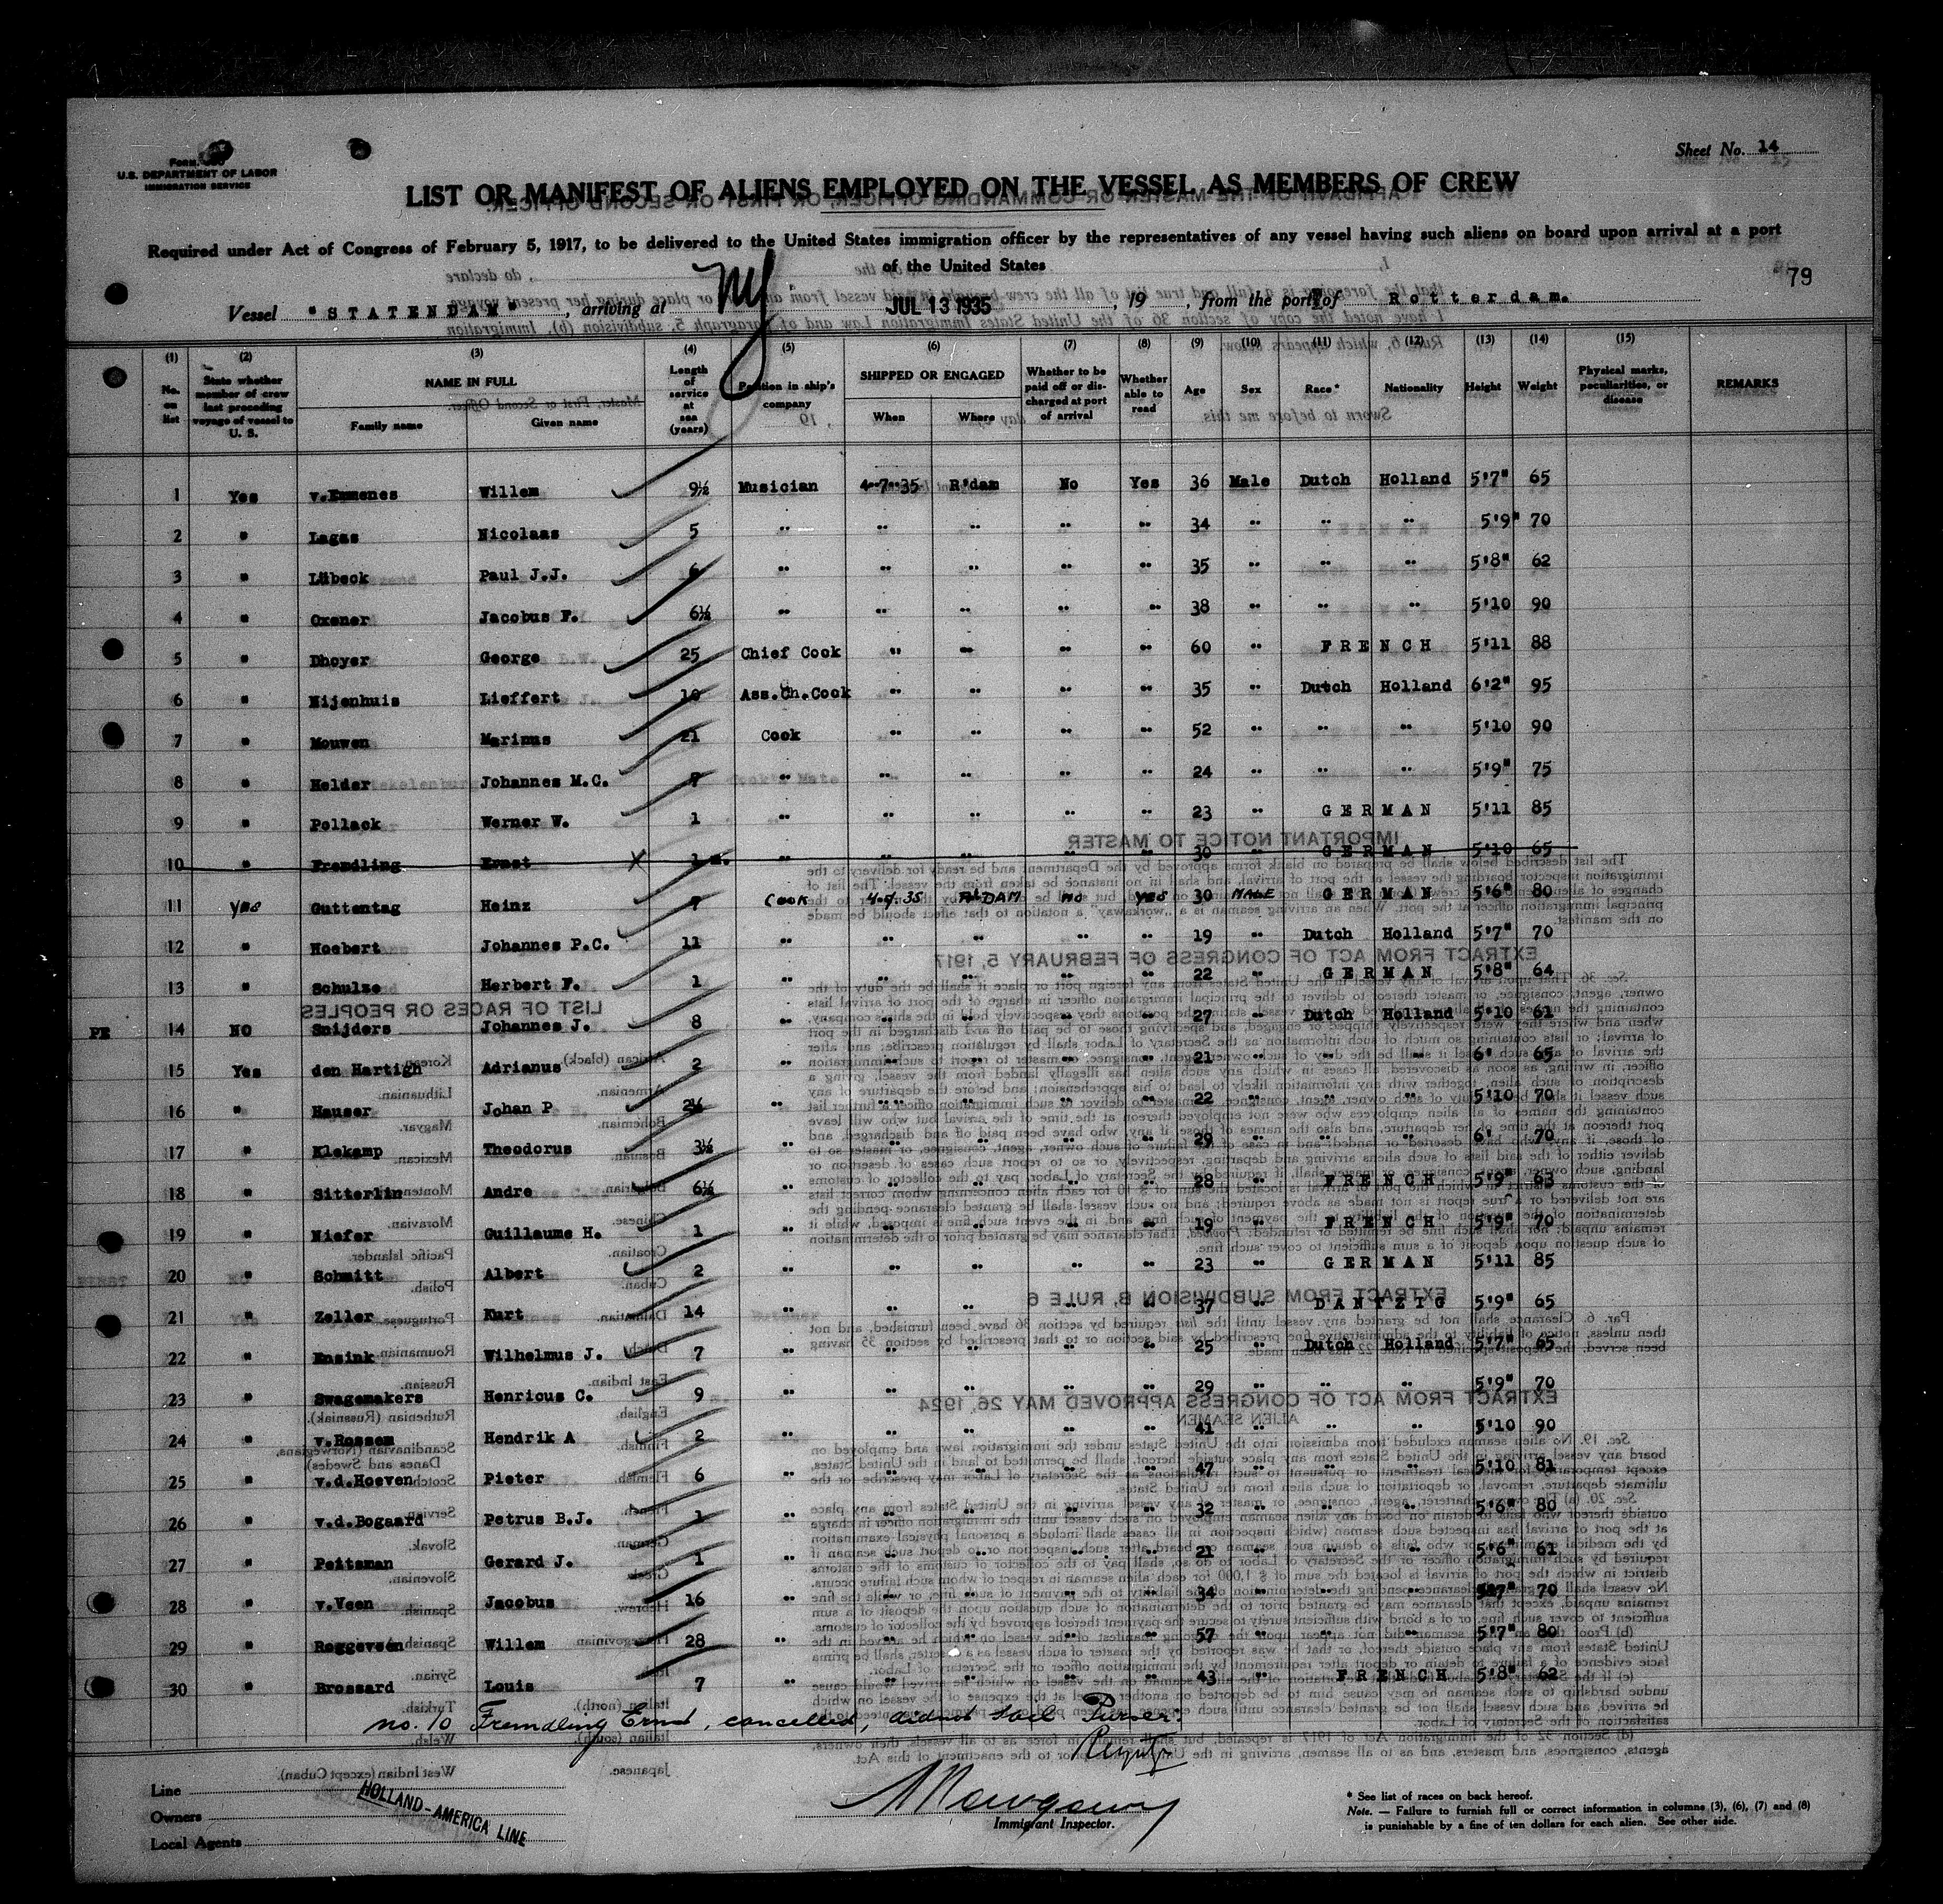 Sheet No. 14
U.S. DEPARTMENT OF LABOR
IMMIGRATION SERVICE
LIST OR MANIFEST OF ALIENS EMPLOYED ON THE VESSEL AS MEMBERS OF CREW
Required under Act of Congress of February 5, 1917, to be delivered to the United States immigration officer by the representatives of any vessel having such aliens on board upon arrival at a port
of the United States
79
Vessel "STATENDAM", arriving at NY JUL 13 1935, 19 , from the port of Rotterdam.
(1) (2) (3) (4) (5) (6) (7) (8) (9) (10) (11) (12) (13) (14) (15)
No. on list State whether member of crew last preceding voyage of vessel to U. S. NAME IN FULL Family name Given name Length of service at sea (years) Position in ship's company SHIPPED OR ENGAGED When Where Whether to be paid off or discharged at port of arrival Whether able to read Age Sex Race* Nationality Height Weight Physical marks, peculiarities, or disease REMARKS
1 Yes v.Emmenes Willem 9½ Musician 4-7-35 R'dam No Yes 36 Male Dutch Holland 5'7" 65
2 " Lagas Nicolaas 5 " " " " " 34 " " " 5'9" 70
3 " Lübeck Paul J.J. 6 " " " " " 35 " " " 5'8" 62
4 " Oxener Jacobus F. 6½ " " " " " 38 " " " 5'10 90
5 " Dhoyer George 25 Chief Cook " " " " 60 " FRENCH 5'11 88
6 " Nijenhuis Lieffert 10 Ass.Ch.Cook " " " " 35 " Dutch Holland 6'2" 95
7 " Mouwen Marinus 21 Cook " " " " 52 " " " 5'10 90
8 " Helder Johannes M.C. 7 " " " " " 24 " " " 5'9" 75
9 " Pollack Werner W. 1 " " " " " 23 " GERMAN 5'11 85
10 " Fremdling Ernst X 1 m. " " " " " 30 " GERMAN 5'10 65
11 yes Guttentag Heinz 7 Cook 4.7.35 R'DAM no yes 30 MALE GERMAN 5'6" 80
12 " Hoebert Johannes P.C. 11 " " " " " 19 " Dutch Holland 5'7" 70
13 " Schulze Herbert F. 1 " " " " " 22 " GERMAN 5'8" 64
PE 14 NO Snijders Johannes J. 8 " " " " " 27 " Dutch Holland 5'10 61
15 Yes den Hartigh Adrianus 2 " " " " " 21 " " " 6' 65
16 " Hauser Johan P 2½ " " " " " 22 " " " 5'10 70
17 " Klekamp Theodorus 3½ " " " " " 29 " " " 6' 70
18 " Sitterlin Andre 6½ " " " " " 28 " FRENCH 5'9" 63
19 " Niefer Guillaume H. 1 " " " " " 19 " FRENCH 5'9" 70
20 " Schmitt Albert 2 " " " " " 23 " GERMAN 5'11 85
21 " Zeller Kurt 14 " " " " " 37 " DANTZIG 5'9" 65
22 " Ensink Wilhelmus J. 7 " " " " " 25 " Dutch Holland 5'7" 65
23 " Swagemakers Henricus C. 9 " " " " " 29 " " " 5'9" 70
24 " v.Rossem Hendrik A 2 " " " " " 41 " " " 5'10 90
25 " v.d.Hoeven Pieter 6 " " " " " 47 " " " 5'10 81
26 " v.d.Bogaard Petrus B.J. 1 " " " " " 32 " " " 5'6" 80
27 " Peitsman Gerard J. 1 " " " " " 21 " " " 5'6" 61
28 " v.Veen Jacobus 16 " " " " " 34 " " " 5'7" 70
29 " Roggeveen Willem 28 " " " " " 57 " " " 5'7" 80
30 " Brossard Louis 7 " " " " " 43 " FRENCH 5'8" 62
no. 10 Fremdling Ernst, cancelled, did not sail Purser:
Line
Owners HOLLAND-AMERICA LINE
Local Agents
Immigrant Inspector.
* See list of races on back hereof.
Note. — Failure to furnish full or correct information in columns (3), (6), (7) and (8)
is punishable by a fine of ten dollars for each alien. See other side.